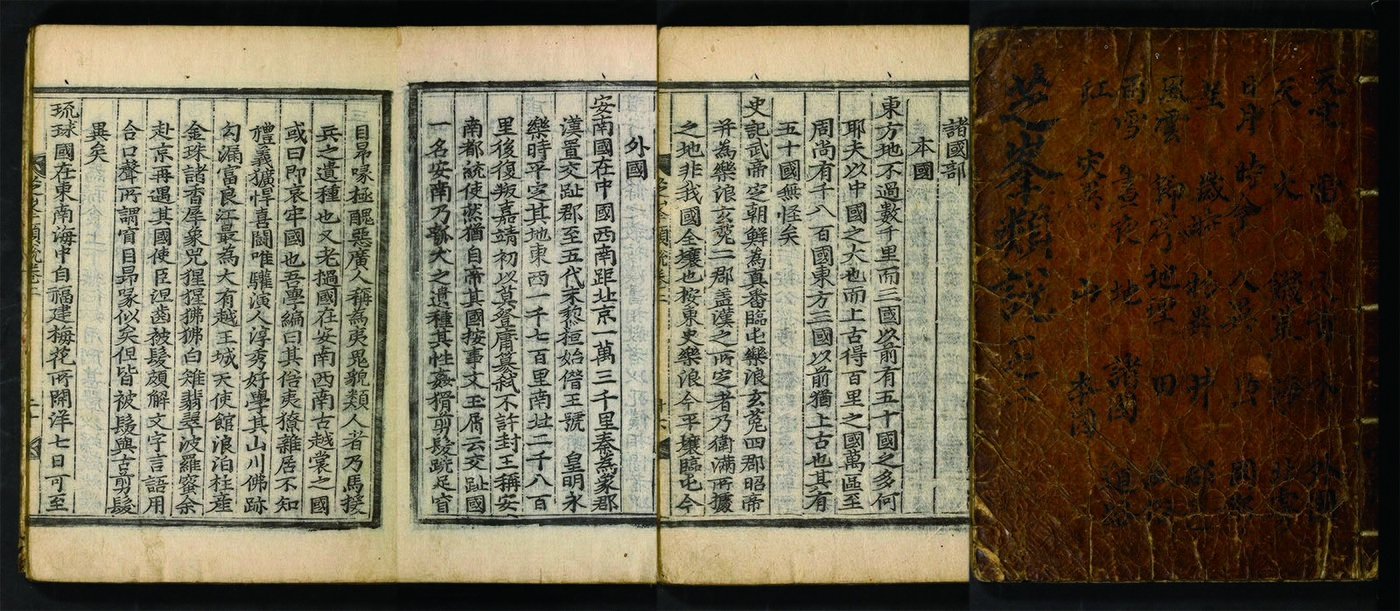 芝峯類說
諸國部
本國
東方地不過數千里而三國以前有五十國之多何
耶夫以中國之大也而上古得百里之國萬區至
周尚有千八百國東方三國以前猶上古也其有
五十國無怪矣
史記武帝定朝鮮為真番臨屯樂浪玄菟四郡昭帝
并為樂浪玄菟二郡盖漢之所定者乃衛滿所據
之地非我國全壤也按東史樂浪今平壤臨屯今
外國
安南國在中國西南距北京一萬三千里秦為象郡
漢置交趾郡至五代末黎桓始僣王號 皇明永
樂時平定其地東西一千七百里南北二千八百
里後復叛嘉靖初以莫登庸簒弑不許封王稱安
南都統使然猶自帝其國按事文玉屑云交趾國
一名安南乃瓠犬之遺種其性姦猾剪髮跣足窅
目昂喙極醜惡廣人稱為夷鬼貌類人者乃馬援
兵之遺種也又老撾國在安南西南古越裳之國
或曰即哀牢國也吾學編曰其俗夷獠雜居不知
禮義獷悍喜鬪唯驩演人淳秀好學其山川佛跡
勾漏富良江最為大有越王城天使館浪泊柱産
金珠諸香犀象兕猩猩狒狒白雉翡翠波羅蜜余
赴京再遇其國使臣涅齒被髮頗解文字言語用
合口聲所謂窅目昂喙似矣但皆被髮與古剪髮
異矣
琉球國在東南海中自福建梅花所開洋七日可至